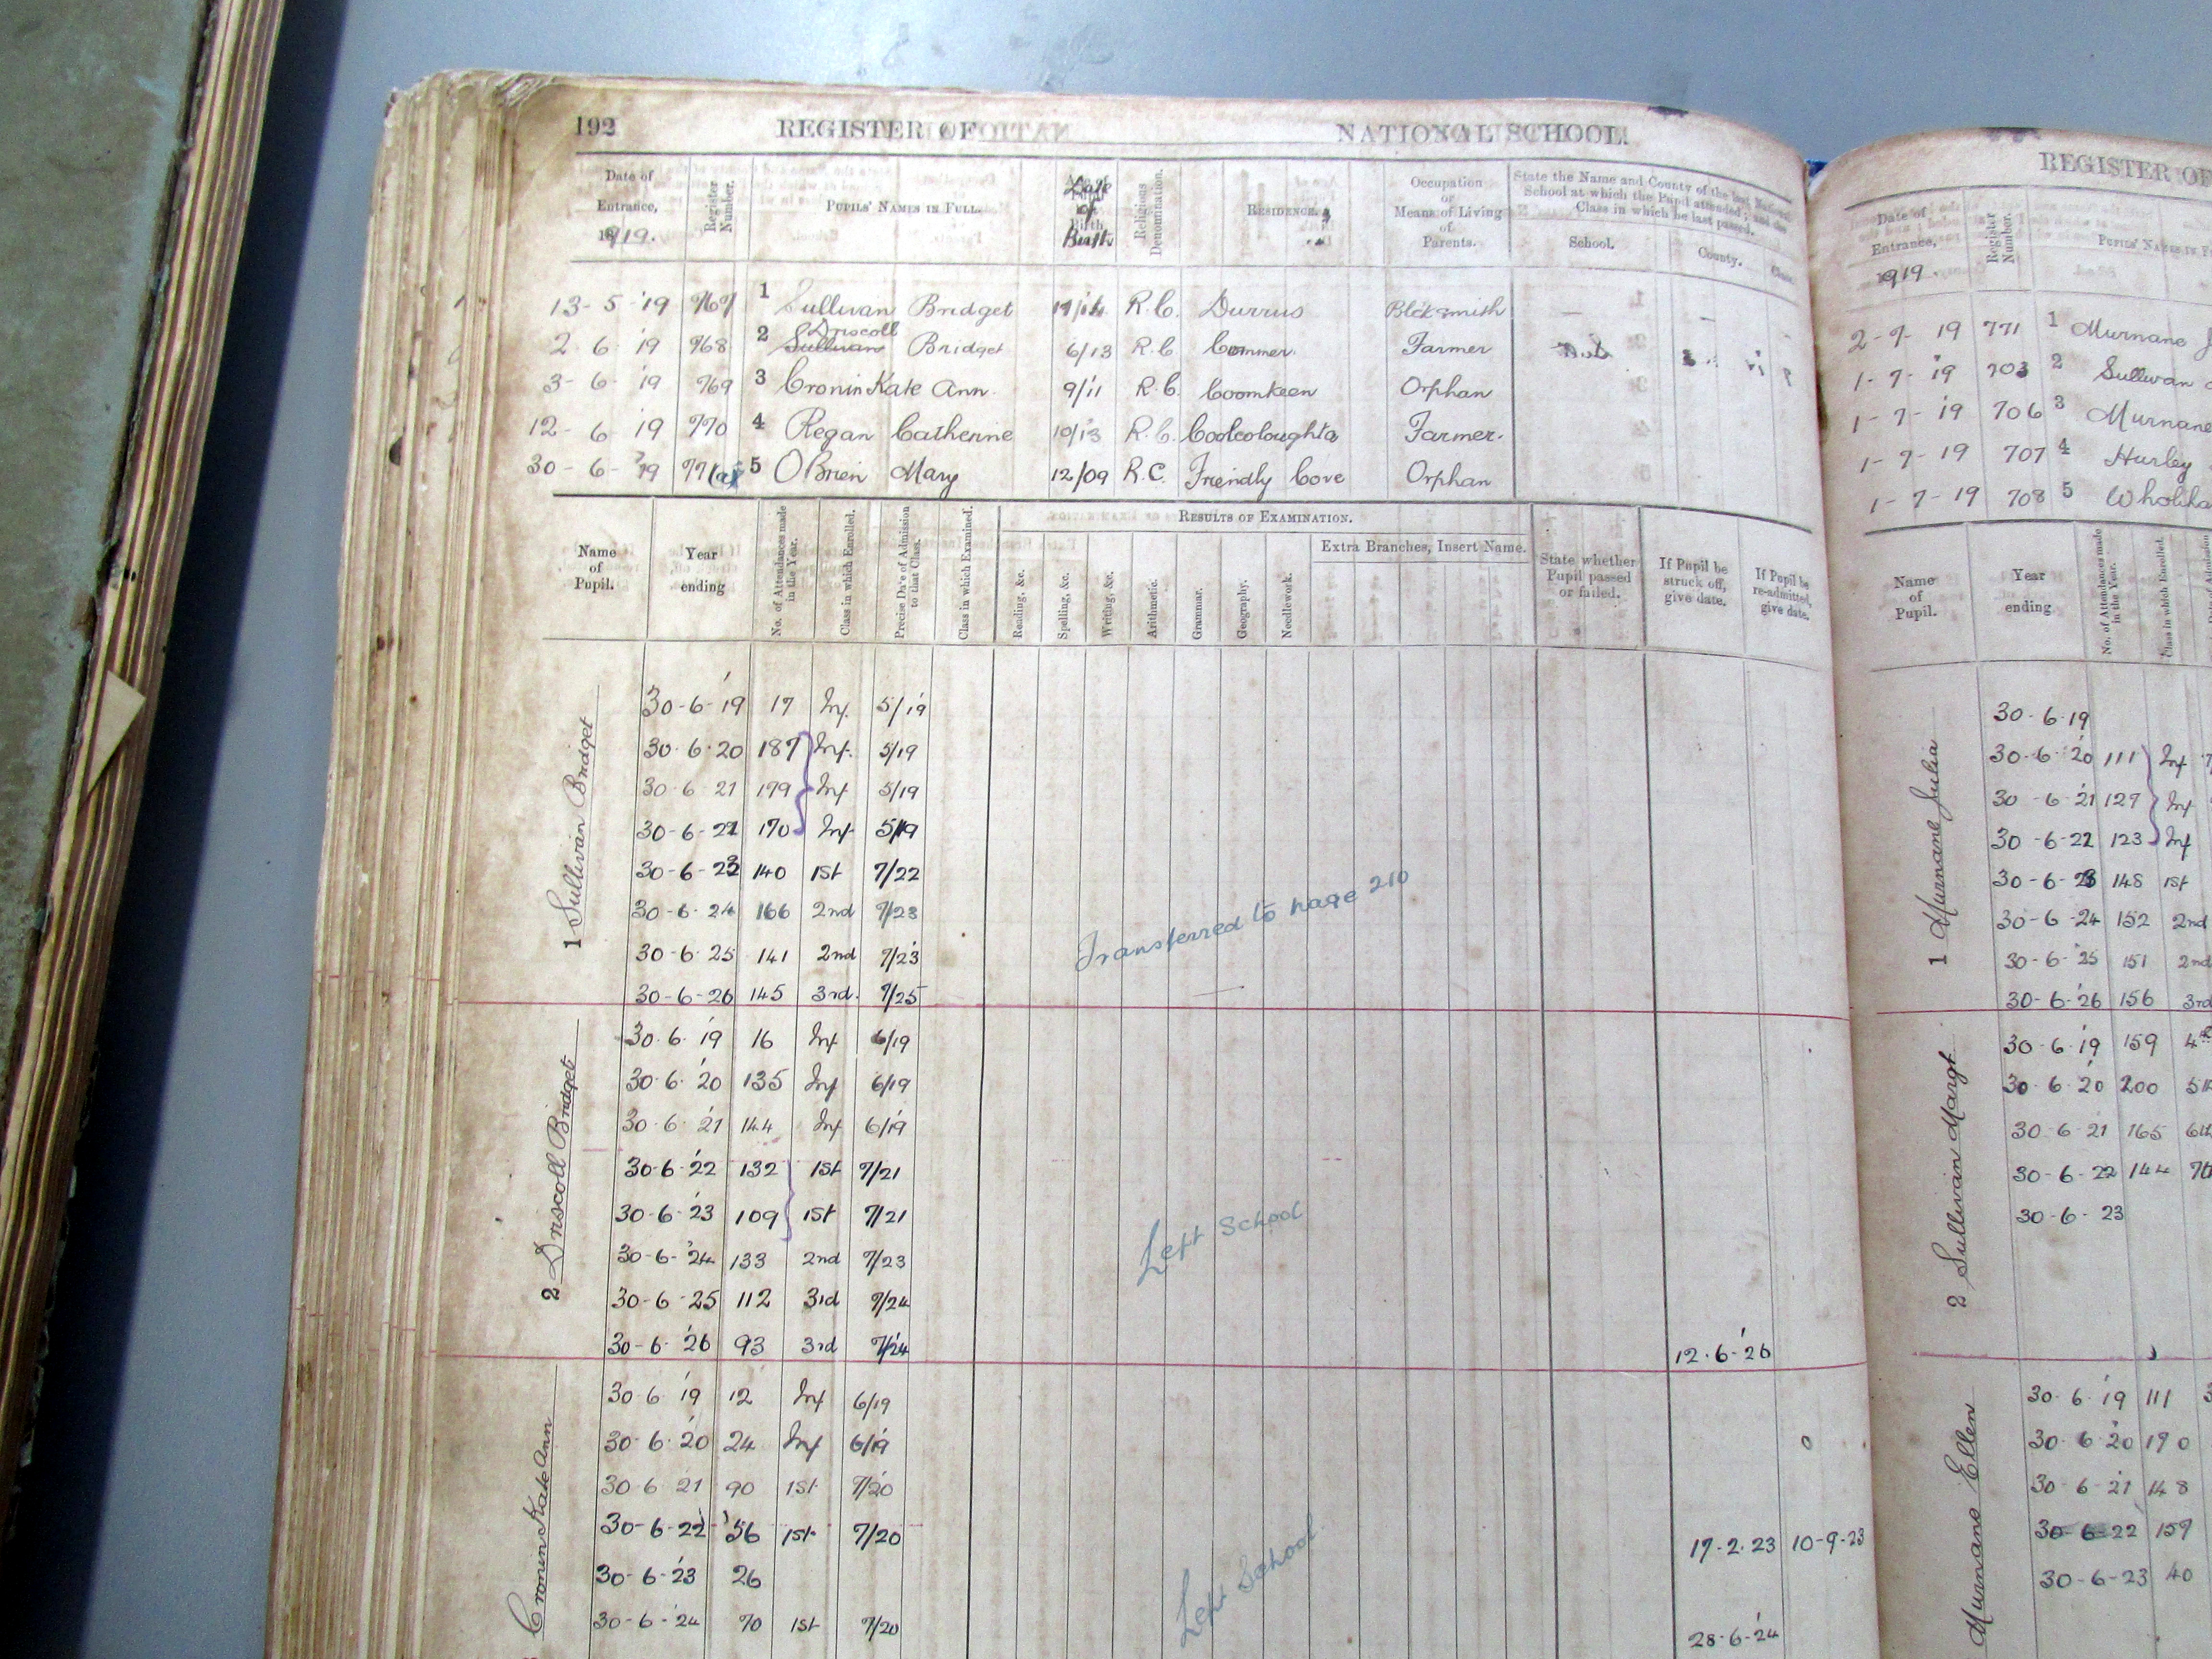 192 REGISTER OF NATIONAL SCHOOL.
Date of Entrance, 1919. Register Number. PUPILS' NAMES IN FULL. Date of Birth Religious Denomination. RESIDENCE. Occupation or Means of Living of Parents. State the Name and County of the last National School at which the Pupil attended; and the Class in which he last passed.
School. County. Class.
13-5-'19 767 1 Sullivan Bridget R.C. Durrus Blcksmith — —
2 6 '19 768 2 Sullivan Driscoll Bridget 6/13 R.C. Commer Farmer
3-6-'19 769 3 Cronin Kate Ann 9/11 R.C. Coomkeen Orphan
12-6 '19 770 4 Regan Catherine 10/13 R.C. Coolcoloughta Farmer.
30-6-'19 771(a) 5 O'Brien Mary 12/09 R.C. Friendly Cove Orphan
Name of Pupil. Year ending No. of Attendances made in the Year. Class in which Enrolled. Precise Date of Admission to that Class. Class in which Examined. RESULTS OF EXAMINATION. State whether Pupil passed or failed. If Pupil be struck off, give date. If Pupil be re-admitted, give date.
Reading, &c. Spelling, &c. Writing, &c. Arithmetic. Grammar. Geography. Needlework. Extra Branches, Insert Name.
1 Sullivan Bridget
30-6-'19 17 Inf. 5/19
30-6-20 187 Inf. 5/19
30 6 21 179 Inf 5/19
30-6-22 170 Inf 5/19
30-6-23 140 1st 7/22
30-6-24 166 2nd 7/23
30-6-25 141 2nd 7/23
30-6-26 145 3rd. 7/25
Transferred to page 210
2 Driscoll Bridget
30.6.'19 16 Inf 6/19
30.6.'20 135 Inf 6/19
30 6 '21 144 Inf 6/19
30-6-'22 132 1st 7/21
30-6-'23 109 1st 7/21
30-6-'24 133 2nd 7/23
30-6-25 112 3rd 7/24
30-6-'26 93 3rd 7/24 12.6-'26
Left School
Cronin Kate Ann
30 6 '19 12 Inf 6/19
30.6.'20 24 Inf 6/19
30 6 21 90 1st 7/20
30-6-22 56 1st 7/20 17-2-23 10-9-23
30-6-'23 26
30-6-'24 70 1st 7/20 28-6-'24
Left School
REGISTER OF
Date of Entrance, 1919. Register Number. PUPILS' NAMES IN
2-7-19 771 1 Murnane J
1-7-'19 703 2 Sullivan
1-7-'19 706 3 Murnane
1-7-19 707 4 Hurley
1-7-19 708 5
Name of Pupil. Year ending No. of Attendances made in the Year. Class in which Enrolled.
1 Murnane Julia
30-6-19
30-6-'20 111 Inf
30-6-'21 127 Inf
30-6-22 123 Inf
30-6-23 148 1st
30-6-24 152 2nd
30-6-25 151 2nd
30-6-'26 156 3rd
2 Sullivan Margt
30-6-'19 159 4th
30.6.'20 200 5th
30.6.21 165 6th
30-6-22 144 7th
30-6-23
Murnane Ellen
30.6.'19 111
30.6.'20 190
30-6-21 148
30-6-22 159
30-6-23 40